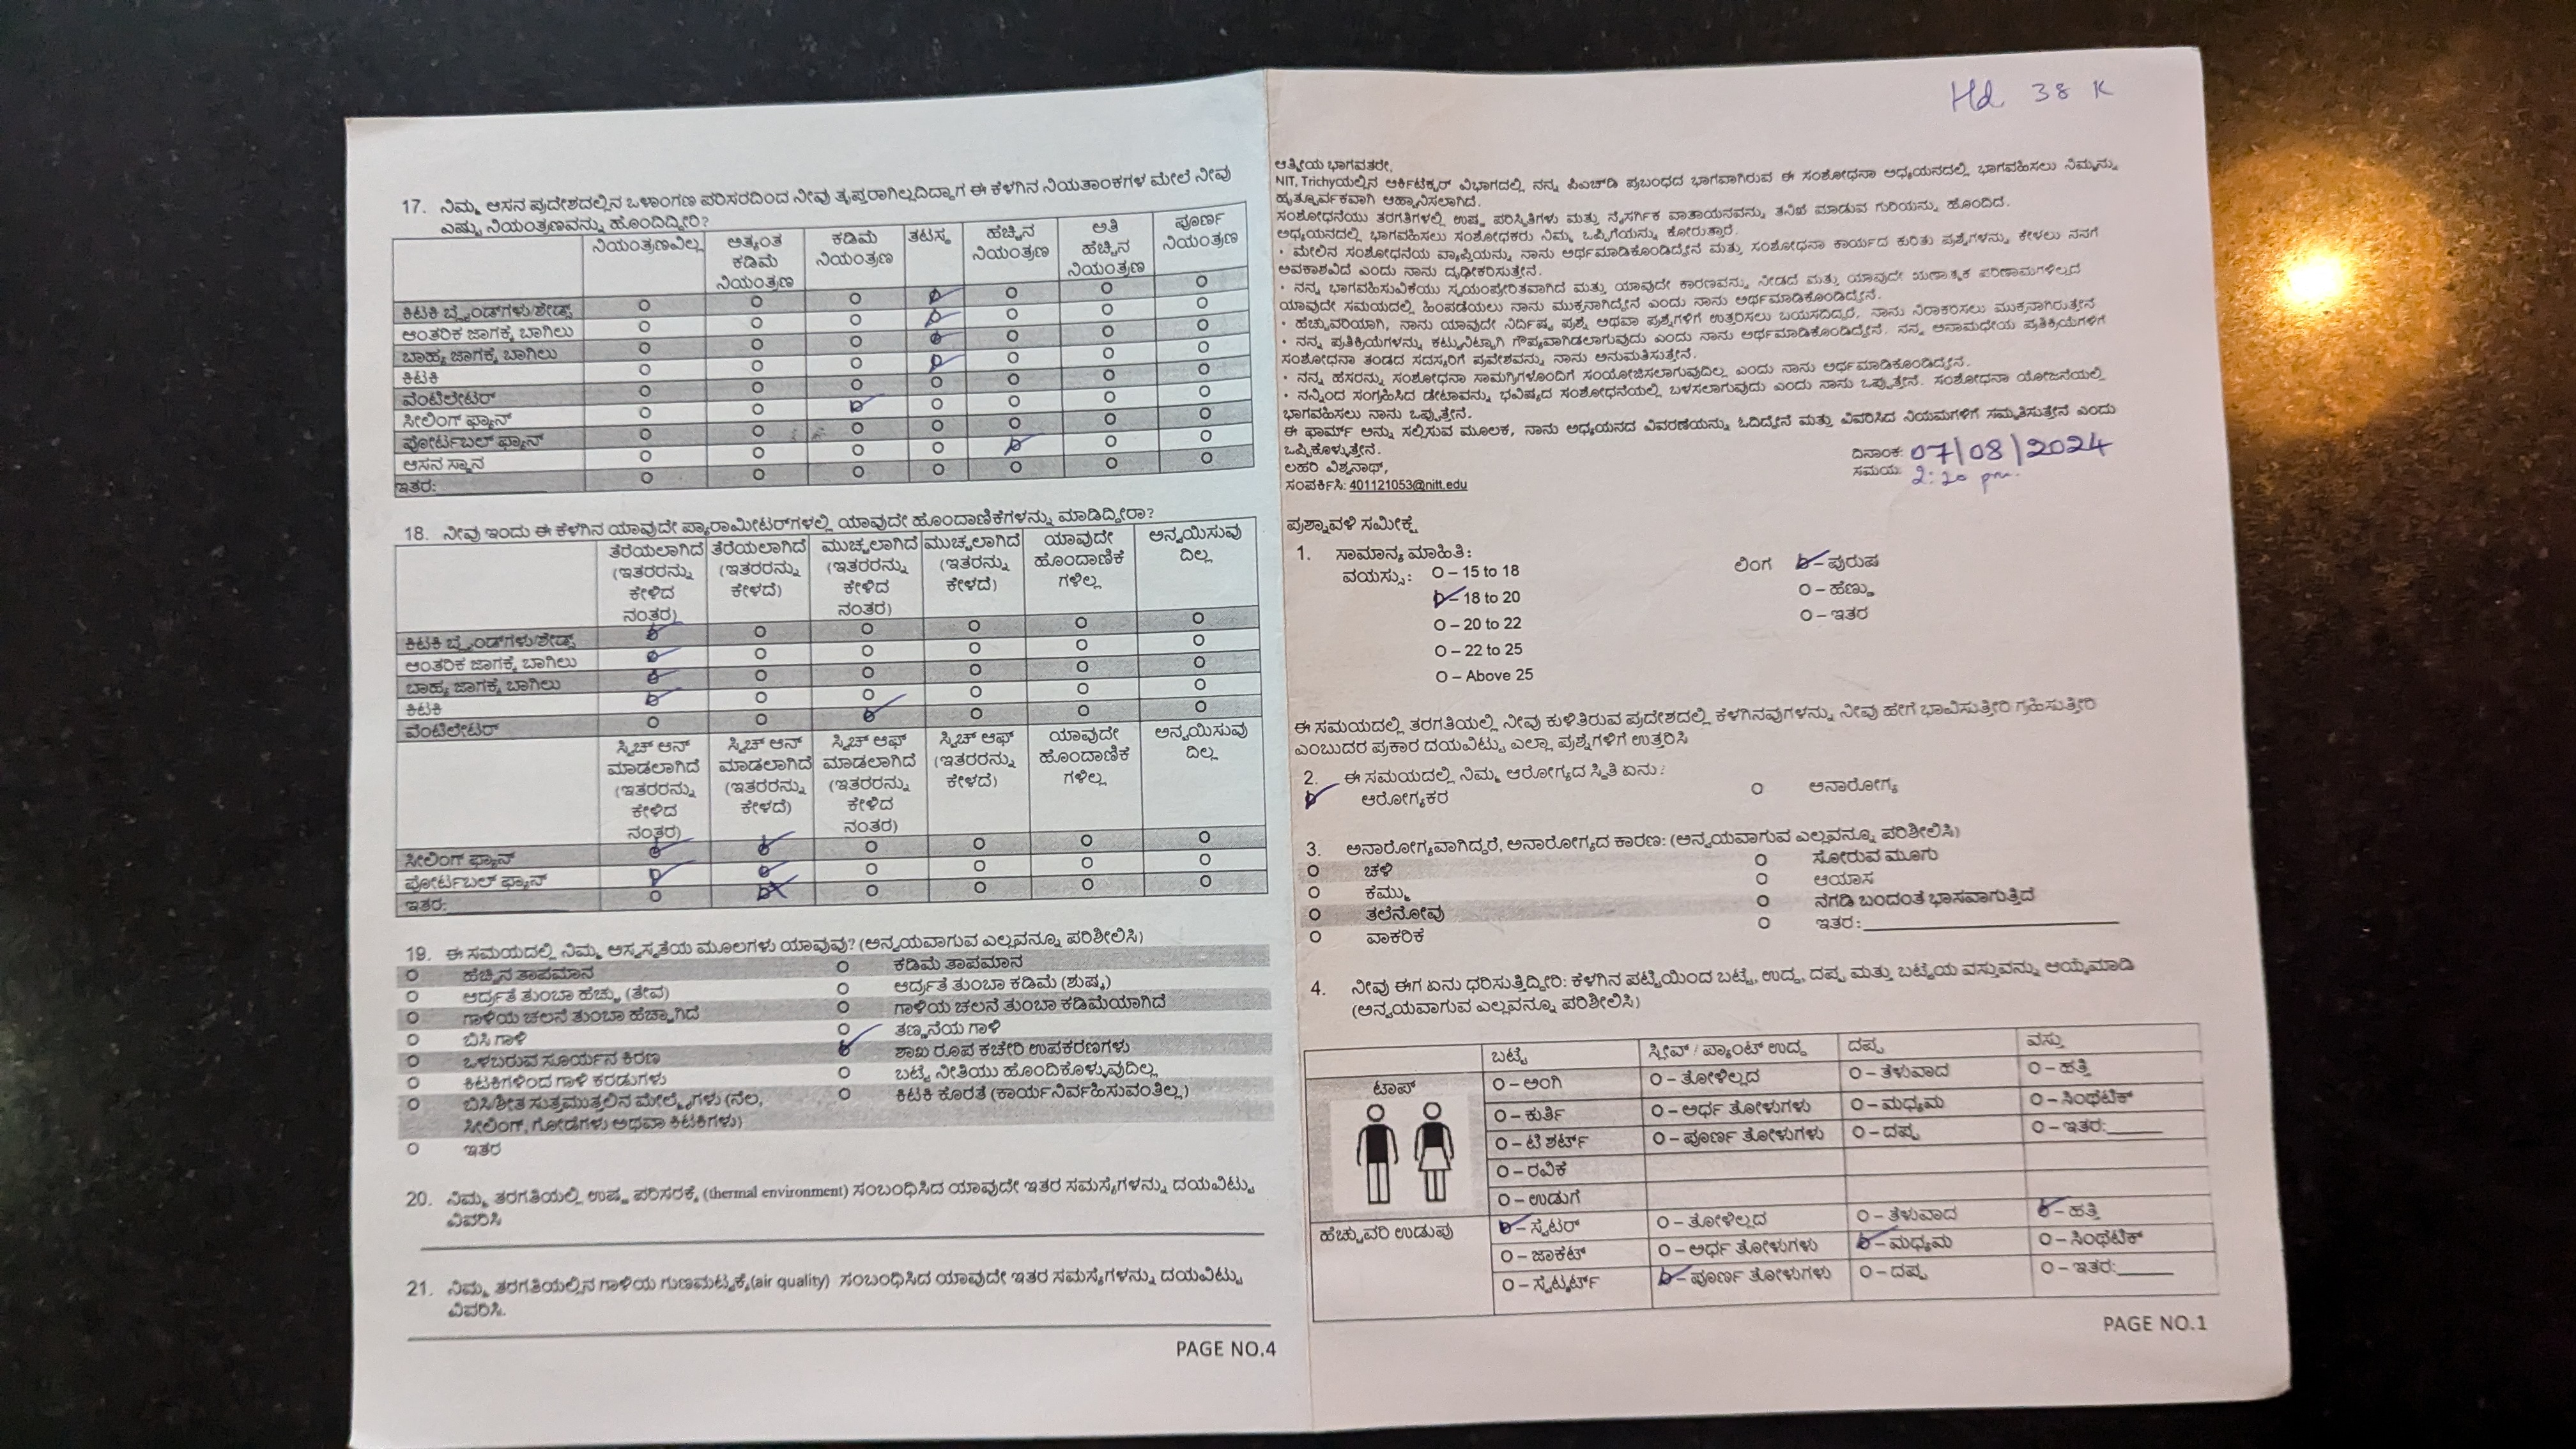 17. ನಿಮ್ಮ ಆಸನ ಪ್ರದೇಶದಲ್ಲಿನ ಒಳಾಂಗಣ ಪರಿಸರದಿಂದ ನೀವು ತೃಪ್ತರಾಗಿಲ್ಲದಿದ್ದಾಗ ಈ ಕೆಳಗಿನ ನಿಯತಾಂಕಗಳ ಮೇಲೆ ನೀವು
ಎಷ್ಟು ನಿಯಂತ್ರಣವನ್ನು ಹೊಂದಿದ್ದೀರಿ?
ನಿಯಂತ್ರಣವಿಲ್ಲ ಅತ್ಯಂತ ಕಡಿಮೆ ನಿಯಂತ್ರಣ ಕಡಿಮೆ ನಿಯಂತ್ರಣ ತಟಸ್ಥ ಹೆಚ್ಚಿನ ನಿಯಂತ್ರಣ ಅತಿ ಹೆಚ್ಚಿನ ನಿಯಂತ್ರಣ ಪೂರ್ಣ ನಿಯಂತ್ರಣ
ಕಿಟಕಿ ಬ್ಲೈಂಡ್‌ಗಳು/ಶೇಡ್ಸ್
ಆಂತರಿಕ ಜಾಗಕ್ಕೆ ಬಾಗಿಲು
ಬಾಹ್ಯ ಜಾಗಕ್ಕೆ ಬಾಗಿಲು
ಕಿಟಕಿ
ವೆಂಟಿಲೇಟರ್
ಸೀಲಿಂಗ್ ಫ್ಯಾನ್
ಪೋರ್ಟಬಲ್ ಫ್ಯಾನ್
ಆಸನ ಸ್ಥಾನ
ಇತರ:
18. ನೀವು ಇಂದು ಈ ಕೆಳಗಿನ ಯಾವುದೇ ಪ್ಯಾರಾಮೀಟರ್‌ಗಳಲ್ಲಿ ಯಾವುದೇ ಹೊಂದಾಣಿಕೆಗಳನ್ನು ಮಾಡಿದ್ದೀರಾ?
ತೆರೆಯಲಾಗಿದೆ (ಇತರರನ್ನು ಕೇಳಿದ ನಂತರ) ತೆರೆಯಲಾಗಿದೆ (ಇತರರನ್ನು ಕೇಳದೆ) ಮುಚ್ಚಲಾಗಿದೆ (ಇತರರನ್ನು ಕೇಳಿದ ನಂತರ) ಮುಚ್ಚಲಾಗಿದೆ (ಇತರನ್ನು ಕೇಳದೆ) ಯಾವುದೇ ಹೊಂದಾಣಿಕೆ ಗಳಿಲ್ಲ ಅನ್ವಯಿಸುವು ದಿಲ್ಲ
ಕಿಟಕಿ ಬ್ಲೈಂಡ್‌ಗಳು/ಶೇಡ್ಸ್
ಆಂತರಿಕ ಜಾಗಕ್ಕೆ ಬಾಗಿಲು
ಬಾಹ್ಯ ಜಾಗಕ್ಕೆ ಬಾಗಿಲು
ಕಿಟಕಿ
ವೆಂಟಿಲೇಟರ್
ಸ್ವಿಚ್ ಆನ್ ಮಾಡಲಾಗಿದೆ (ಇತರರನ್ನು ಕೇಳಿದ ನಂತರ) ಸ್ವಿಚ್ ಆನ್ ಮಾಡಲಾಗಿದೆ (ಇತರರನ್ನು ಕೇಳದೆ) ಸ್ವಿಚ್ ಆಫ್ ಮಾಡಲಾಗಿದೆ (ಇತರರನ್ನು ಕೇಳಿದ ನಂತರ) ಸ್ವಿಚ್ ಆಫ್ (ಇತರರನ್ನು ಕೇಳದೆ) ಯಾವುದೇ ಹೊಂದಾಣಿಕೆ ಗಳಿಲ್ಲ ಅನ್ವಯಿಸುವು ದಿಲ್ಲ
ಸೀಲಿಂಗ್ ಫ್ಯಾನ್
ಪೋರ್ಟಬಲ್ ಫ್ಯಾನ್
ಇತರ:
19. ಈ ಸಮಯದಲ್ಲಿ ನಿಮ್ಮ ಅಸ್ವಸ್ಥತೆಯ ಮೂಲಗಳು ಯಾವುವು? (ಅನ್ವಯವಾಗುವ ಎಲ್ಲವನ್ನೂ ಪರಿಶೀಲಿಸಿ)
ಹೆಚ್ಚಿನ ತಾಪಮಾನ ಕಡಿಮೆ ತಾಪಮಾನ
ಆರ್ದ್ರತೆ ತುಂಬಾ ಹೆಚ್ಚು (ತೇವ) ಆರ್ದ್ರತೆ ತುಂಬಾ ಕಡಿಮೆ (ಶುಷ್ಕ)
ಗಾಳಿಯ ಚಲನೆ ತುಂಬಾ ಹೆಚ್ಚಾಗಿದೆ ಗಾಳಿಯ ಚಲನೆ ತುಂಬಾ ಕಡಿಮೆಯಾಗಿದೆ
ಬಿಸಿ ಗಾಳಿ ತಣ್ಣನೆಯ ಗಾಳಿ
ಒಳಬರುವ ಸೂರ್ಯನ ಕಿರಣ ಶಾಖ ರೂಪ ಕಚೇರಿ ಉಪಕರಣಗಳು
ಕಿಟಕಿಗಳಿಂದ ಗಾಳಿ ಕರಡುಗಳು ಬಟ್ಟೆ ನೀತಿಯು ಹೊಂದಿಕೊಳ್ಳುವುದಿಲ್ಲ
ಬಿಸಿ/ಶೀತ ಸುತ್ತಮುತ್ತಲಿನ ಮೇಲ್ಮೈಗಳು (ನೆಲ, ಕಿಟಕಿ ಕೊರತೆ (ಕಾರ್ಯನಿರ್ವಹಿಸುವಂತಿಲ್ಲ)
ಸೀಲಿಂಗ್, ಗೋಡೆಗಳು ಅಥವಾ ಕಿಟಕಿಗಳು)
ಇತರ
20. ನಿಮ್ಮ ತರಗತಿಯಲ್ಲಿ ಉಷ್ಣ ಪರಿಸರಕ್ಕೆ (thermal environment) ಸಂಬಂಧಿಸಿದ ಯಾವುದೇ ಇತರ ಸಮಸ್ಯೆಗಳನ್ನು ದಯವಿಟ್ಟು
ವಿವರಿಸಿ
21. ನಿಮ್ಮ ತರಗತಿಯಲ್ಲಿನ ಗಾಳಿಯ ಗುಣಮಟ್ಟಕ್ಕೆ(air quality) ಸಂಬಂಧಿಸಿದ ಯಾವುದೇ ಇತರ ಸಮಸ್ಯೆಗಳನ್ನು ದಯವಿಟ್ಟು
ವಿವರಿಸಿ.
PAGE NO.4
Hd 38 K
ಆತ್ಮೀಯ ಭಾಗವತರೇ,
NIT, Trichyಯಲ್ಲಿನ ಆರ್ಕಿಟೆಕ್ಚರ್ ವಿಭಾಗದಲ್ಲಿ ನನ್ನ ಪಿಎಚ್‌ಡಿ ಪ್ರಬಂಧದ ಭಾಗವಾಗಿರುವ ಈ ಸಂಶೋಧನಾ ಅಧ್ಯಯನದಲ್ಲಿ ಭಾಗವಹಿಸಲು ನಿಮ್ಮನ್ನು
ಹೃತ್ಪೂರ್ವಕವಾಗಿ ಆಹ್ವಾನಿಸಲಾಗಿದೆ.
ಸಂಶೋಧನೆಯು ತರಗತಿಗಳಲ್ಲಿ ಉಷ್ಣ ಪರಿಸ್ಥಿತಿಗಳು ಮತ್ತು ನೈಸರ್ಗಿಕ ವಾತಾಯನವನ್ನು ತನಿಖೆ ಮಾಡುವ ಗುರಿಯನ್ನು ಹೊಂದಿದೆ.
ಅಧ್ಯಯನದಲ್ಲಿ ಭಾಗವಹಿಸಲು ಸಂಶೋಧಕರು ನಿಮ್ಮ ಒಪ್ಪಿಗೆಯನ್ನು ಕೋರುತ್ತಾರೆ.
• ಮೇಲಿನ ಸಂಶೋಧನೆಯ ವ್ಯಾಪ್ತಿಯನ್ನು ನಾನು ಅರ್ಥಮಾಡಿಕೊಂಡಿದ್ದೇನೆ ಮತ್ತು ಸಂಶೋಧನಾ ಕಾರ್ಯದ ಕುರಿತು ಪ್ರಶ್ನೆಗಳನ್ನು ಕೇಳಲು ನನಗೆ
ಅವಕಾಶವಿದೆ ಎಂದು ನಾನು ದೃಢೀಕರಿಸುತ್ತೇನೆ.
• ನನ್ನ ಭಾಗವಹಿಸುವಿಕೆಯು ಸ್ವಯಂಪ್ರೇರಿತವಾಗಿದೆ ಮತ್ತು ಯಾವುದೇ ಕಾರಣವನ್ನು ನೀಡದೆ ಮತ್ತು ಯಾವುದೇ ಋಣಾತ್ಮಕ ಪರಿಣಾಮಗಳಿಲ್ಲದೆ
ಯಾವುದೇ ಸಮಯದಲ್ಲಿ ಹಿಂಪಡೆಯಲು ನಾನು ಮುಕ್ತನಾಗಿದ್ದೇನೆ ಎಂದು ನಾನು ಅರ್ಥಮಾಡಿಕೊಂಡಿದ್ದೇನೆ.
• ಹೆಚ್ಚುವರಿಯಾಗಿ, ನಾನು ಯಾವುದೇ ನಿರ್ದಿಷ್ಟ ಪ್ರಶ್ನೆ ಅಥವಾ ಪ್ರಶ್ನೆಗಳಿಗೆ ಉತ್ತರಿಸಲು ಬಯಸದಿದ್ದರೆ, ನಾನು ನಿರಾಕರಿಸಲು ಮುಕ್ತನಾಗಿರುತ್ತೇನೆ
• ನನ್ನ ಪ್ರತಿಕ್ರಿಯೆಗಳನ್ನು ಕಟ್ಟುನಿಟ್ಟಾಗಿ ಗೌಪ್ಯವಾಗಿಡಲಾಗುವುದು ಎಂದು ನಾನು ಅರ್ಥಮಾಡಿಕೊಂಡಿದ್ದೇನೆ. ನನ್ನ ಅನಾಮಧೇಯ ಪ್ರತಿಕ್ರಿಯೆಗಳಿಗೆ
ಸಂಶೋಧನಾ ತಂಡದ ಸದಸ್ಯರಿಗೆ ಪ್ರವೇಶವನ್ನು ನಾನು ಅನುಮತಿಸುತ್ತೇನೆ.
• ನನ್ನ ಹೆಸರನ್ನು ಸಂಶೋಧನಾ ಸಾಮಗ್ರಿಗಳೊಂದಿಗೆ ಸಂಯೋಜಿಸಲಾಗುವುದಿಲ್ಲ ಎಂದು ನಾನು ಅರ್ಥಮಾಡಿಕೊಂಡಿದ್ದೇನೆ.
• ನನ್ನಿಂದ ಸಂಗ್ರಹಿಸಿದ ಡೇಟಾವನ್ನು ಭವಿಷ್ಯದ ಸಂಶೋಧನೆಯಲ್ಲಿ ಬಳಸಲಾಗುವುದು ಎಂದು ನಾನು ಒಪ್ಪುತ್ತೇನೆ. ಸಂಶೋಧನಾ ಯೋಜನೆಯಲ್ಲಿ
ಭಾಗವಹಿಸಲು ನಾನು ಒಪ್ಪುತ್ತೇನೆ.
ಈ ಫಾರ್ಮ್ ಅನ್ನು ಸಲ್ಲಿಸುವ ಮೂಲಕ, ನಾನು ಅಧ್ಯಯನದ ವಿವರಣೆಯನ್ನು ಓದಿದ್ದೇನೆ ಮತ್ತು ವಿವರಿಸಿದ ನಿಯಮಗಳಿಗೆ ಸಮ್ಮತಿಸುತ್ತೇನೆ ಎಂದು
ಒಪ್ಪಿಕೊಳ್ಳುತ್ತೇನೆ.
ದಿನಾಂಕ: 07/08/2024
ಲಹರಿ ವಿಶ್ವನಾಥ್,
ಸಮಯ: 2:20 pm.
ಸಂಪರ್ಕಿಸಿ: 401121053@nitt.edu
ಪ್ರಶ್ನಾವಳಿ ಸಮೀಕ್ಷೆ
1. ಸಾಮಾನ್ಯ ಮಾಹಿತಿ:
ವಯಸ್ಸು: O – 15 to 18 ಲಿಂಗ O – ಪುರುಷ
O – 18 to 20 O – ಹೆಣ್ಣು
O – 20 to 22 O – ಇತರ
O – 22 to 25
O – Above 25
ಈ ಸಮಯದಲ್ಲಿ ತರಗತಿಯಲ್ಲಿ ನೀವು ಕುಳಿತಿರುವ ಪ್ರದೇಶದಲ್ಲಿ ಕೆಳಗಿನವುಗಳನ್ನು ನೀವು ಹೇಗೆ ಭಾವಿಸುತ್ತೀರಿ ಗ್ರಹಿಸುತ್ತೀರಿ
ಎಂಬುದರ ಪ್ರಕಾರ ದಯವಿಟ್ಟು ಎಲ್ಲಾ ಪ್ರಶ್ನೆಗಳಿಗೆ ಉತ್ತರಿಸಿ
2. ಈ ಸಮಯದಲ್ಲಿ ನಿಮ್ಮ ಆರೋಗ್ಯದ ಸ್ಥಿತಿ ಏನು?
ಆರೋಗ್ಯಕರ ಅನಾರೋಗ್ಯ
3. ಅನಾರೋಗ್ಯವಾಗಿದ್ದರೆ, ಅನಾರೋಗ್ಯದ ಕಾರಣ: (ಅನ್ವಯವಾಗುವ ಎಲ್ಲವನ್ನೂ ಪರಿಶೀಲಿಸಿ)
ಚಳಿ ಸೋರುವ ಮೂಗು
ಕೆಮ್ಮು ಆಯಾಸ
ತಲೆನೋವು ನೆಗಡಿ ಬಂದಂತೆ ಭಾಸವಾಗುತ್ತಿದೆ
ವಾಕರಿಕೆ ಇತರ:
4. ನೀವು ಈಗ ಏನು ಧರಿಸುತ್ತಿದ್ದೀರಿ: ಕೆಳಗಿನ ಪಟ್ಟಿಯಿಂದ ಬಟ್ಟೆ, ಉದ್ದ, ದಪ್ಪ ಮತ್ತು ಬಟ್ಟೆಯ ವಸ್ತುವನ್ನು ಆಯ್ಕೆಮಾಡಿ
(ಅನ್ವಯವಾಗುವ ಎಲ್ಲವನ್ನೂ ಪರಿಶೀಲಿಸಿ)
ಬಟ್ಟೆ ಸ್ಲೀವ್ / ಪ್ಯಾಂಟ್ ಉದ್ದ ದಪ್ಪ ವಸ್ತು
ಟಾಪ್ O – ಅಂಗಿ O – ತೋಳಿಲ್ಲದ O – ತೆಳುವಾದ O – ಹತ್ತಿ
O – ಕುರ್ತಿ O – ಅರ್ಧ ತೋಳುಗಳು O – ಮಧ್ಯಮ O – ಸಿಂಥೆಟಿಕ್
O – ಟಿ ಶರ್ಟ್ O – ಪೂರ್ಣ ತೋಳುಗಳು O – ದಪ್ಪ O – ಇತರ:
O – ರವಿಕೆ
O – ಉಡುಗೆ
ಹೆಚ್ಚುವರಿ ಉಡುಪು O – ಸ್ವೆಟರ್ O – ತೋಳಿಲ್ಲದ O – ತೆಳುವಾದ O – ಹತ್ತಿ
O – ಜಾಕೆಟ್ O – ಅರ್ಧ ತೋಳುಗಳು O – ಮಧ್ಯಮ O – ಸಿಂಥೆಟಿಕ್
O – ಸ್ವೆಟ್ಶರ್ಟ್ O – ಪೂರ್ಣ ತೋಳುಗಳು O – ದಪ್ಪ O – ಇತರ:
PAGE NO.1